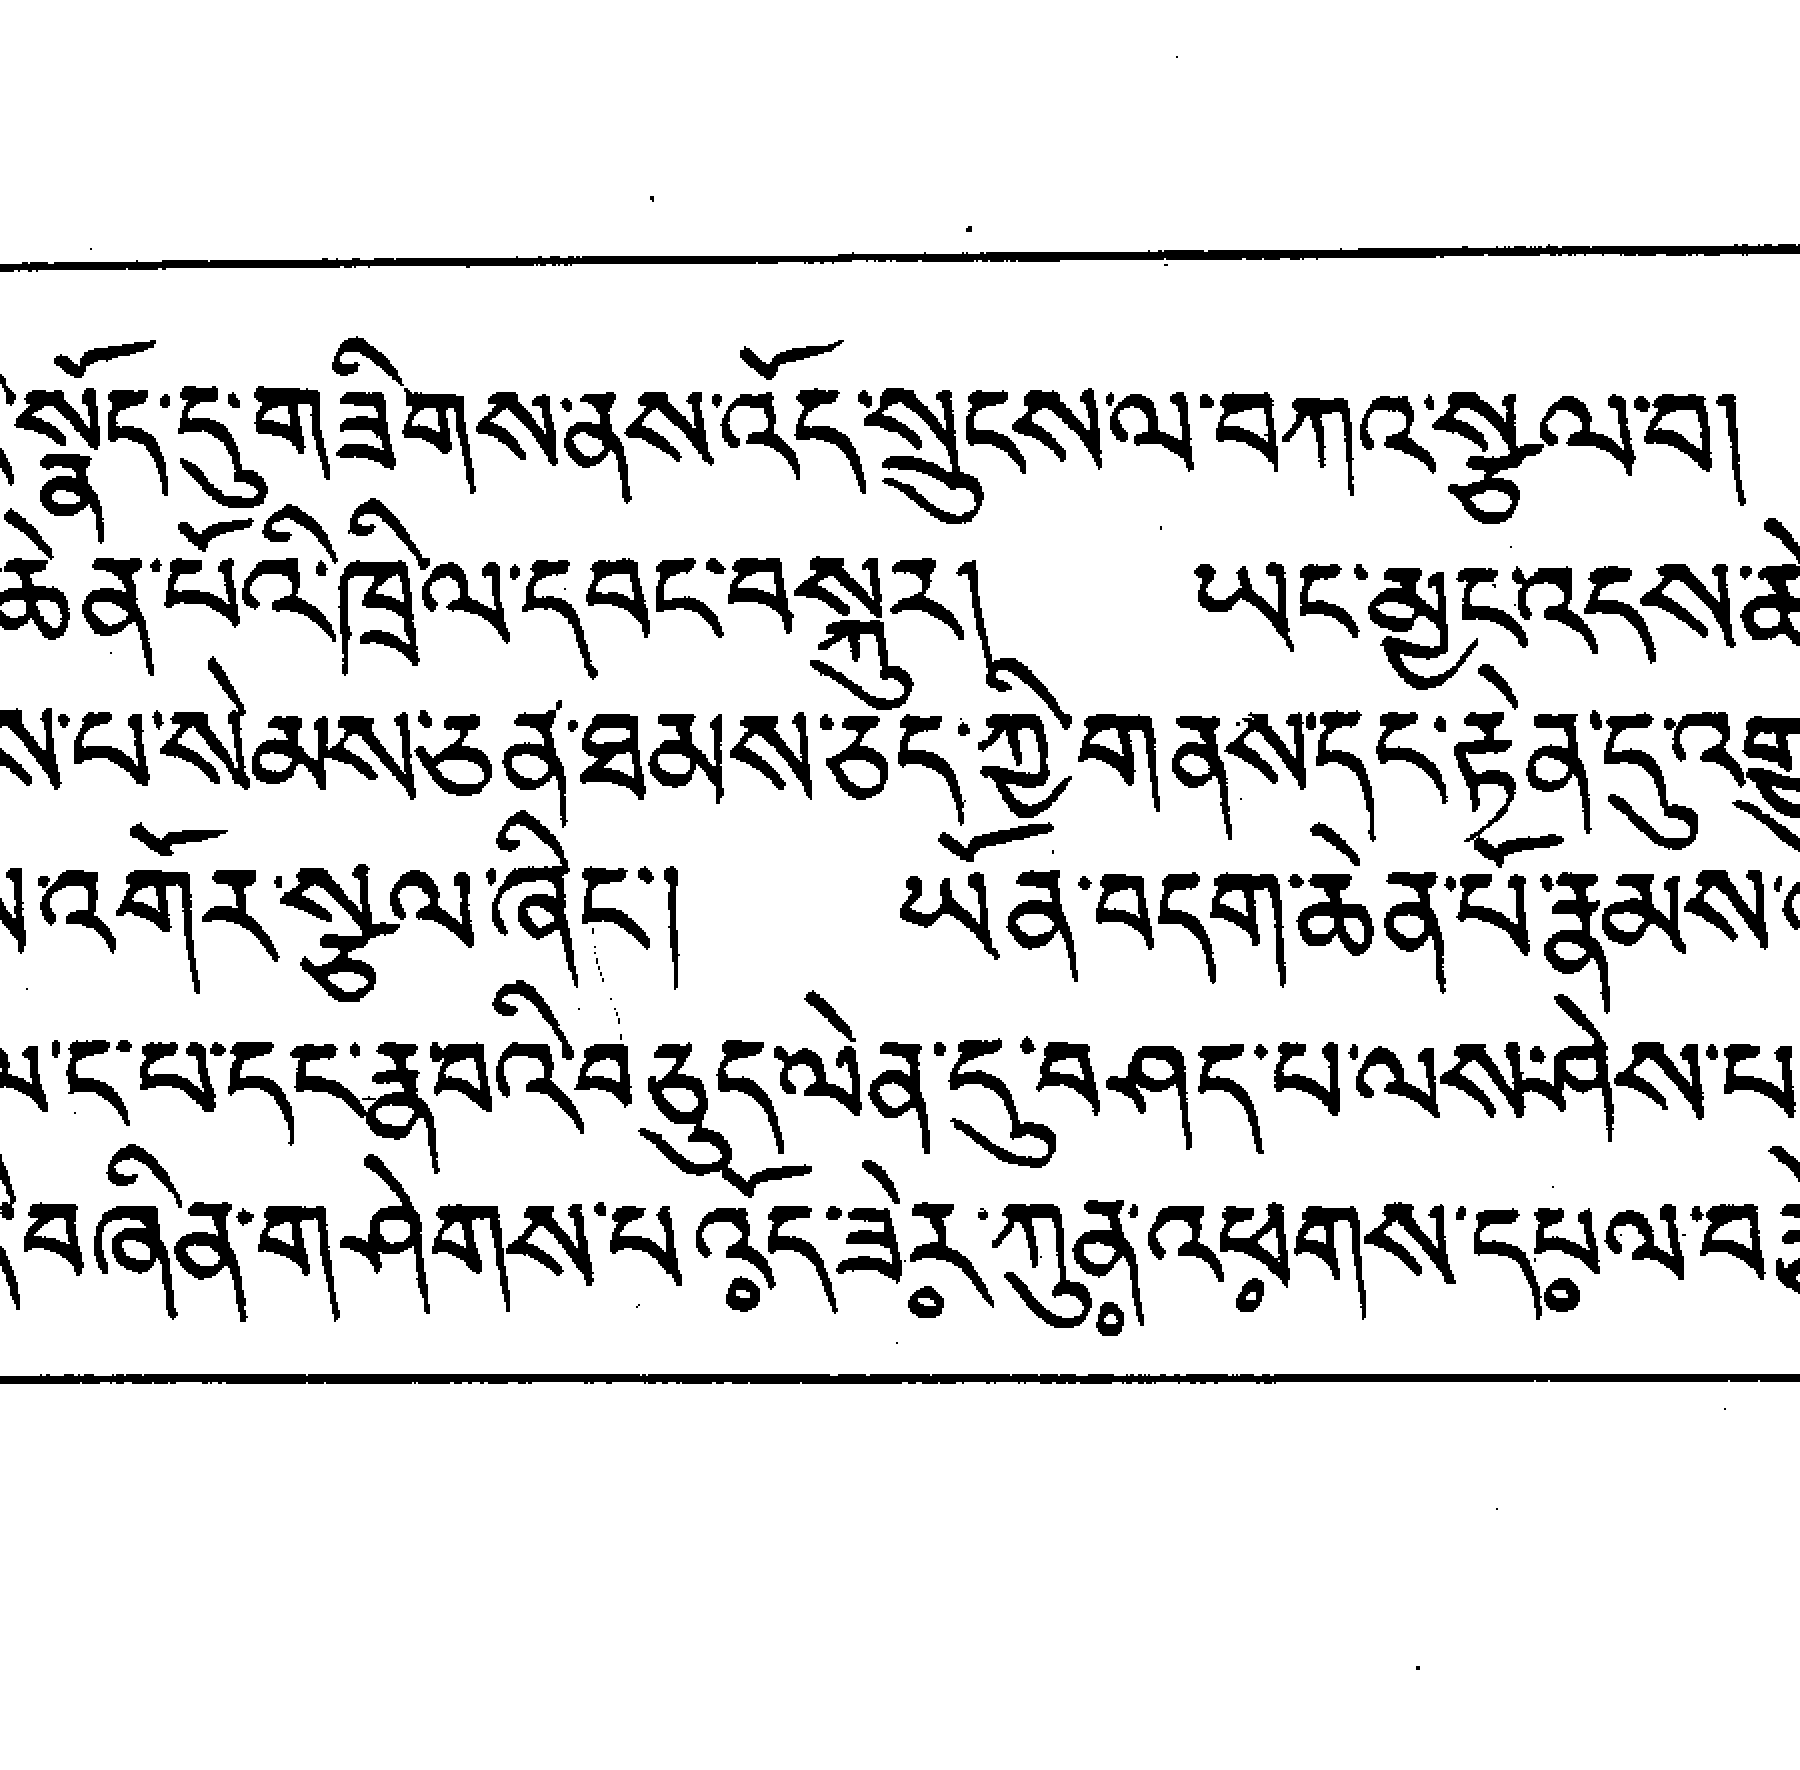 སྣོད་དུ་གཟིགས་ནས་འོད་སྲུངས་ལ་བཀའ་སྩལ་བ།
ཆེན་པོའི་ཁྲིལ་དབང་བསྐུར། ཡང་མྱང་འདས་
ས་པ་སེམས་ཅན་ཐམས་ཅད་ཀྱི་གནས་དང་རྟེན་དུ་
འགོར་སྩལ་ཞིང་། ཡོན་བདག་ཆེན་པོ་རྣམས་
ང་པ་དང་རྣ་བའི་བཅུད་ལེན་དུ་བཤད་པ་ལས་ཤེས་པ
བཞིན་གཤེགས་པ་འོ༹ད་ཟེ༹ར་ཀུན༹་འཕ༹གས་དཔ༹ལ་བ